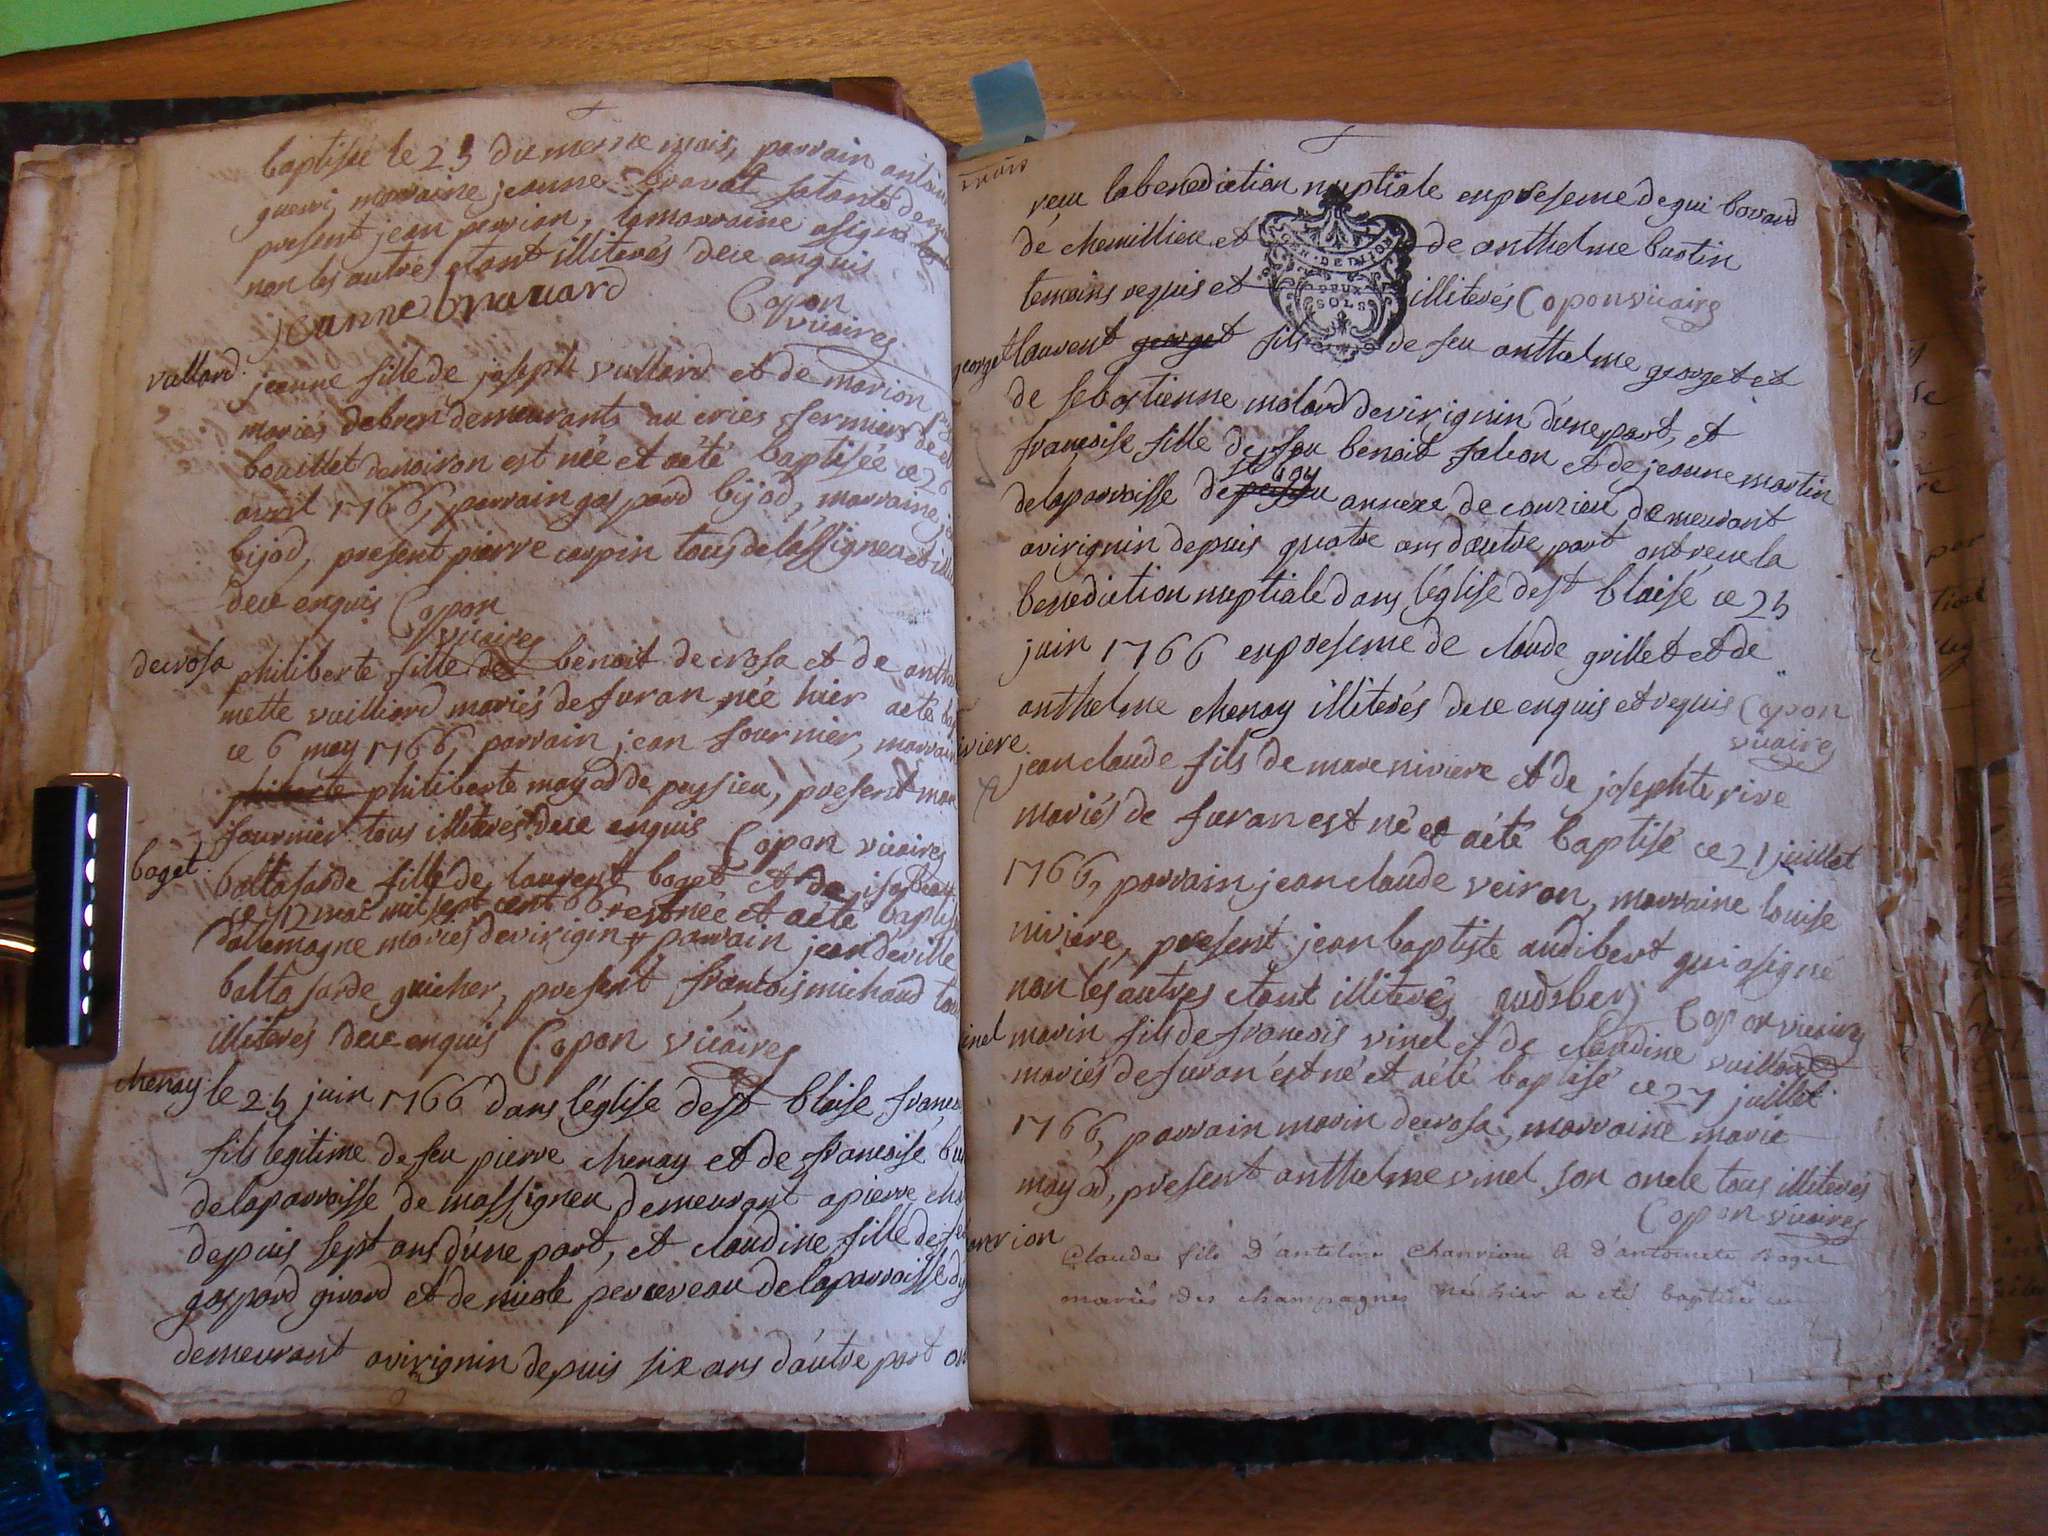 baptisé le 25 du mesme mois, parrain antoine
guerri, marraine jeanne bravat sa tante
present jean perrion, la marraine a signé
non les autres etant illiterés dece enquis
jeanne brauard
Copon
vicaires
vullard. jeanne fille de joseph vullard et de marion
mariés de bren demeurants au cries fermiers de
bouillet denoiron est née et aété baptisée ce 26
avril 1766, parrain gaspard bijod, marraine
bijod, present pierre carpin tous de lassignea et
dece enquis Copon
vicaires
decrosa philiberte fille de benoit decrosa et de anthel
mette vuilliard mariés desfuran née hier aété
ce 6 may 1766, parrain jean fournier, marraine
philiberte philiberte mayod de peysieu, present
fournier tous illiterés dece enquis Copon vicaires
boget. baltasarde fille de laurent boget et de isabeau
ce 12 mai mil sept cent 66 est née et aété baptisée
dallemagne mariés devirigin parrain jean deville
baltasarde guicher, present francois michaud
illiterés dece enquis Copon vicaires
chenay. le 25 juin 1766 dans l'église de st blaise,
fils legitime de feu pierre chenay et de francoise
de la parroisse de massigneu demeurant a pierre
depuis sept ans d'une part, et claudine fille de
gaspard girard et de nicole perceveau de la parroisse
demeurant avirignin depuis six ans d'autre part
reçu la benediction nuptiale en presence de gui bovard
de chemilliere et de anthelme bartin
temoins requis et illiterés Copon vicaires
GEN · DE DIJON
DEUX
SOLS
georget laurent georget fils de feu anthelme georget et
de sebastienne molard devirignin d'une part, et
francoise fille de feu benoit falion et de jeanne martin
st boy
de la parroisse de peysieu annexe de couzieu demeurant
avirignin depuis quatre ans d'autre part ont reçu la
benediction nuptiale dans l'église de st blaise ce 25
juin 1766 en presence de claude grillet et de
anthelme chenay illiterés dece enquis et requis Copon
vicaires
iviere. jean claude fils de marc niviere et de josephte rive
mariés de furan est né et aété baptisé ce 21 juillet
1766, parrain jean claude veiron, marraine louise
niviere, present jean baptiste audibert qui a signé
non les autres etant illiterés audiber Copon vicaires
inel marin fils de francois vinel et de claudine vuillard
mariés de furan est né et aété baptisé ce 27 juillet
1766, parrain marin decrosa, marraine marie
mayod, present anthelme vinel son oncle tous illiterés
Copon vicaires
anrion Claude fils d'antelme Chanrion & d'antoinete Boget
mariés des champagnes né hier a eté baptisé ce